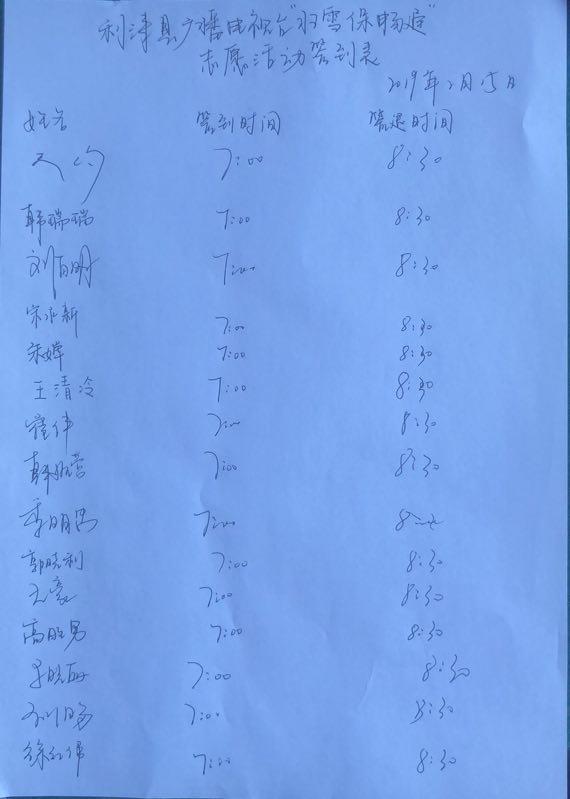 利津县广播电视台"扫雪保畅通"
志愿活动签到表
2019年2月15日
姓名 签到时间 签退时间
7:00 8:30
韩瑞瑞 7:00 8:30
刘百明 7:00 8:30
宋永新 7:00 8:30
宋婵 7:00 8:30
王清泠 7:00 8:30
崔伟 7:00 8:30
韩 7:00 8:30
李明 7:00 8:30
郭晓利 7:00 8:30
王豪 7:00 8:30
高胜男 7:00 8:30
7:00 8:30
7:00 8:30
徐红伟 7:00 8:30